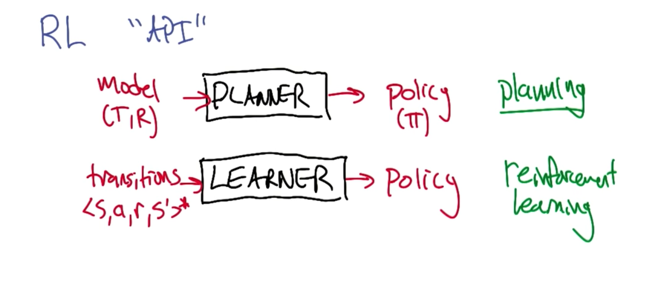 RL "API"
model → PLANNER → policy planning
(T,R) (π)
transitions → LEARNER → policy reinforcement
<s,a,r,s'>* learning